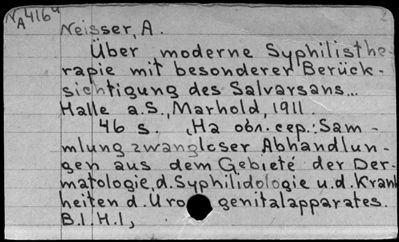 N A416u
Neisser, A.
Über moderne Syphilisthe-
rapie mit besonderer Berück-
sichtigung des Salvarsans...
Halle a.S., Marhold, 1911.
46 s. (На обл. сер.: Sam-
mlung zwangloser Abhandlun-
gen aus dem Gebiete der Der-
matologie, d. Syphilidologie u. d. Krank
heiten d. Uro genitalapparates.
B.I. H.I,